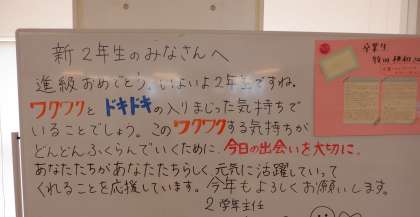 新2年生のみなさんへ
進級おめでとう。いよいよ2年生ですね。
ワクワクと ドキドキの入りまじった気持ちで
いることでしょう。このワクワクする気持ちが
どんどんふくらんでいくために、今日の出会いを大切に。
あなたたちがあなたたちらしく元気に活躍していって
くれることを応援しています。今年もよろしくお願いします。
2学年主任
卒業生